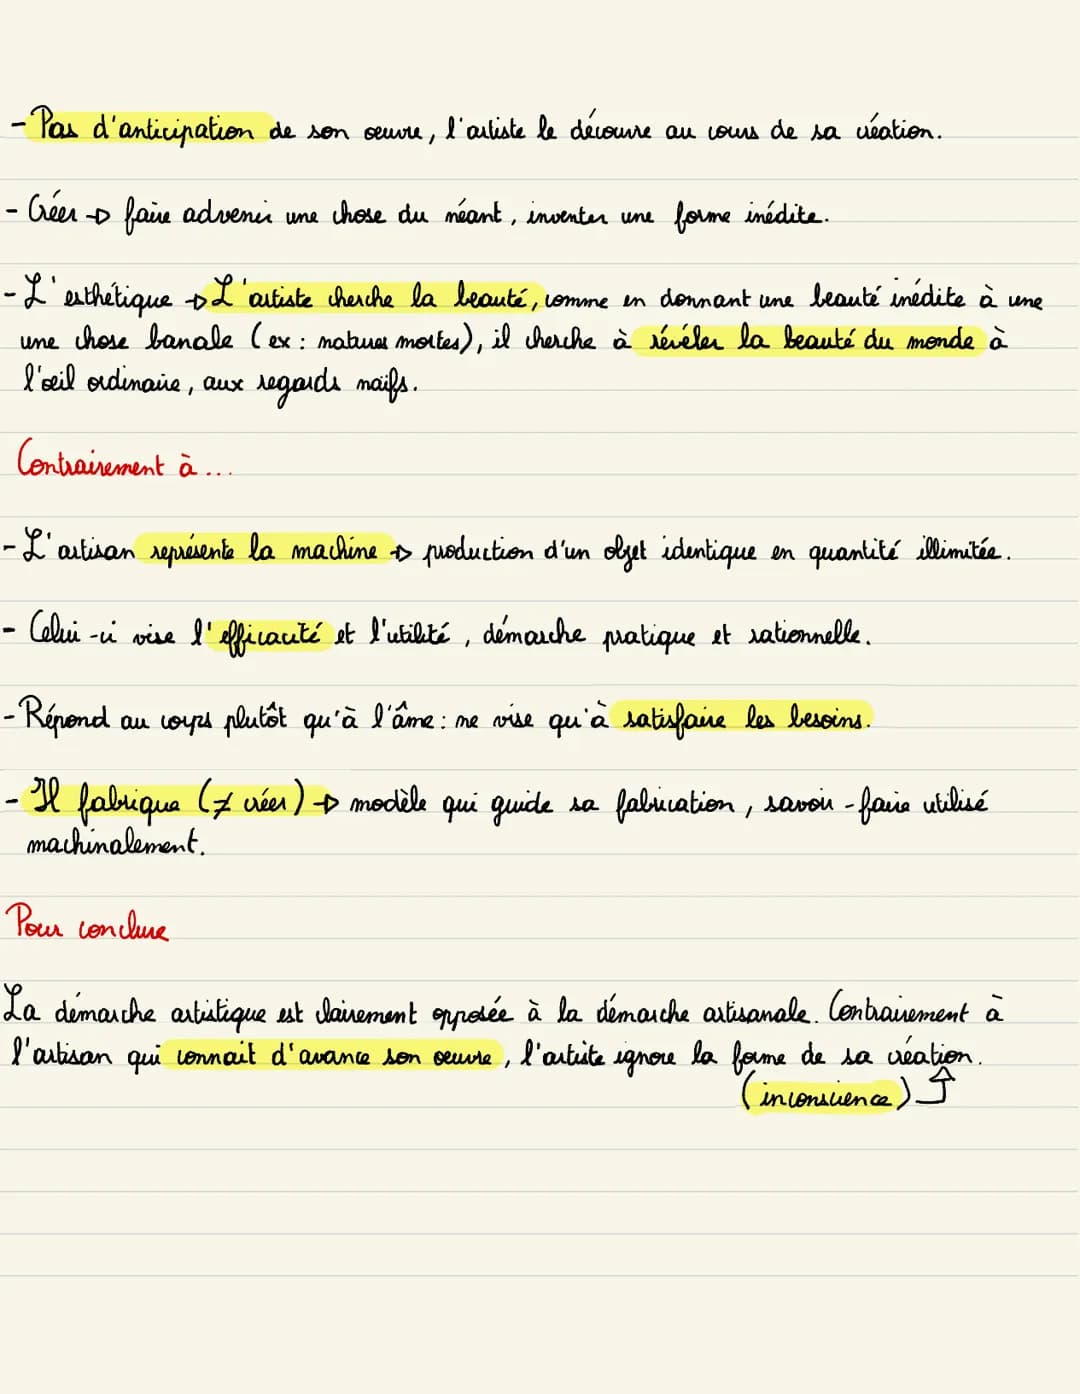 - Pas d'anticipation de son œuvre, l'artiste le découvre au cours de sa création.
- Créer → faire advenir une chose du néant, inventer une forme inédite.
- L'esthétique → L'artiste cherche la beauté, comme en donnant une beauté inédite à une
une chose banale (ex : natures mortes), il cherche à révéler la beauté du monde à
l'œil ordinaire, aux regards naïfs.
Contrairement à ...
- L'artisan représente la machine → production d'un objet identique en quantité illimitée.
- Celui-ci vise l'efficacité et l'utilité, démarche pratique et rationnelle.
- Répond au corps plutôt qu'à l'âme : ne vise qu'à satisfaire les besoins.
- Il fabrique (≠ créer) → modèle qui guide sa fabrication, savoir-faire utilisé
machinalement.
Pour conclure
La démarche artistique est clairement opposée à la démarche artisanale. Contrairement à
l'artisan qui connait d'avance son oeuvre, l'artiste ignore la forme de sa création.
(inconscience)